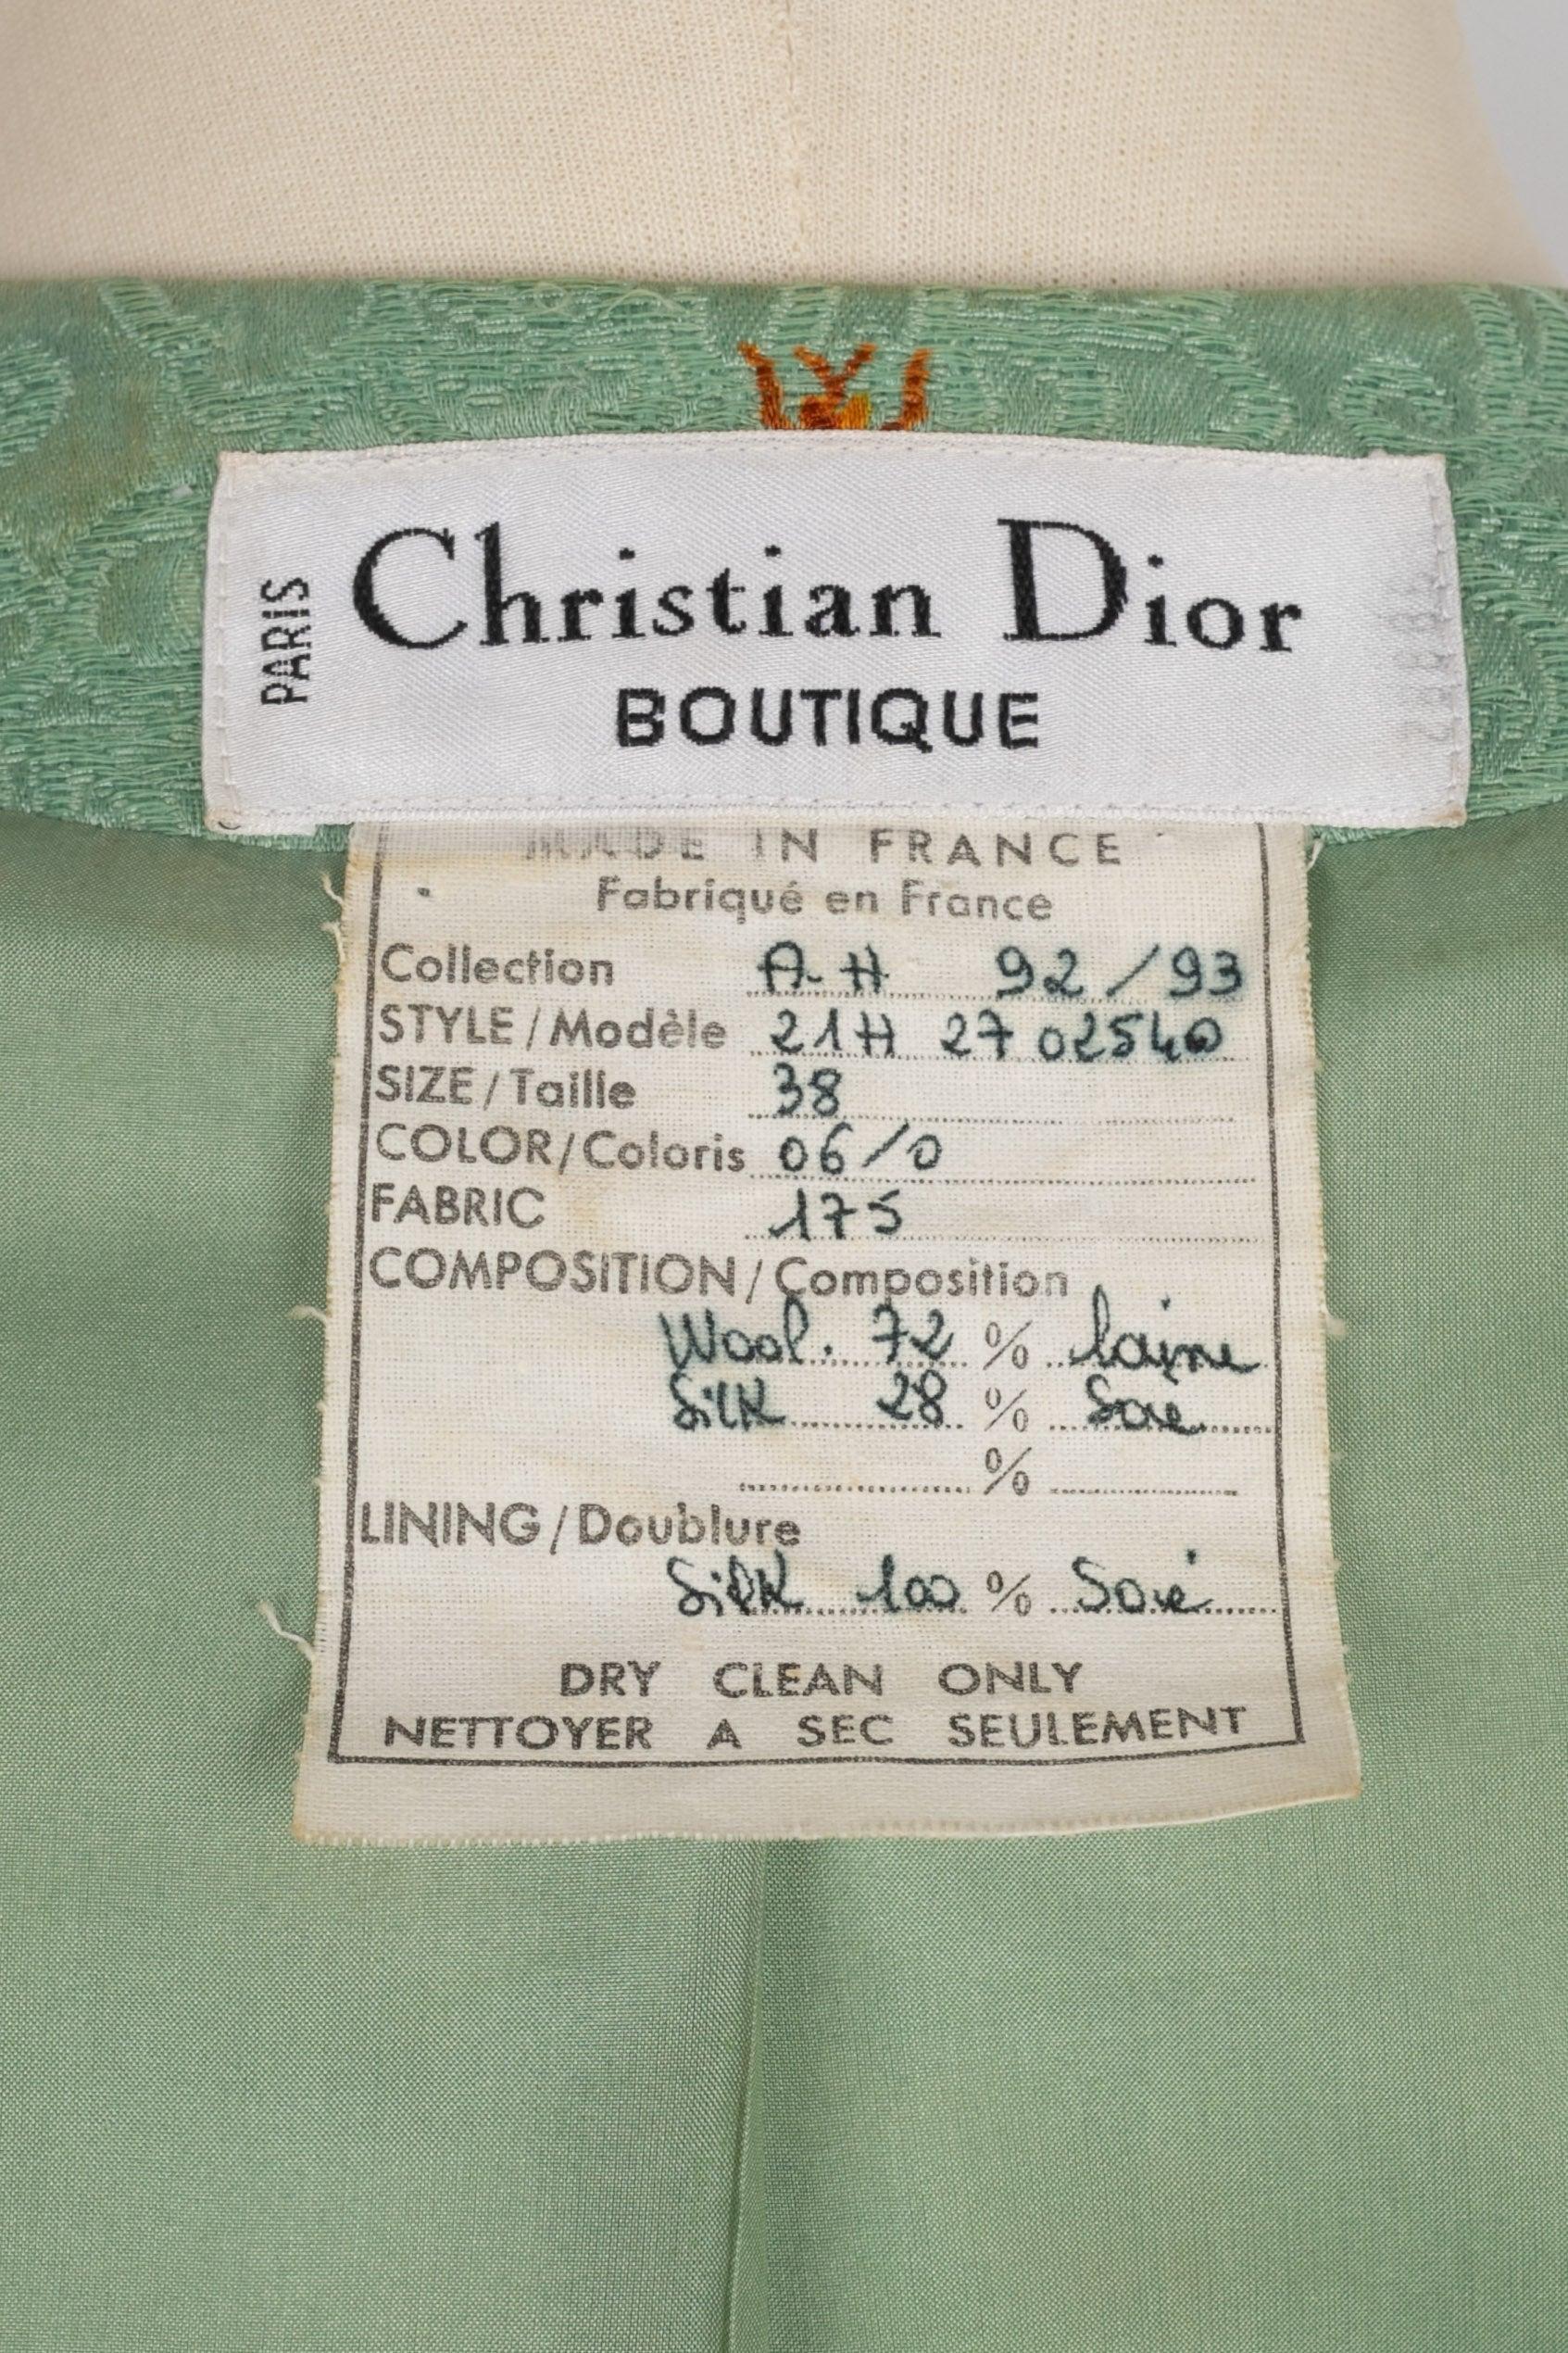 PARIS
Christian Dior
BOUTIQUE
MADE IN FRANCE
Fabriqué en France
Collection A-H 92/93
STYLE/Modèle 21H 27 02540
SIZE/Taille 38
COLOR/Coloris 06/0
FABRIC 175
COMPOSITION/Composition
Wool. 72 % laine
Silk 28 % Soie
%
LINING/Doublure
Silk 100 % Soie
DRY CLEAN ONLY
NETTOYER A SEC SEULEMENT